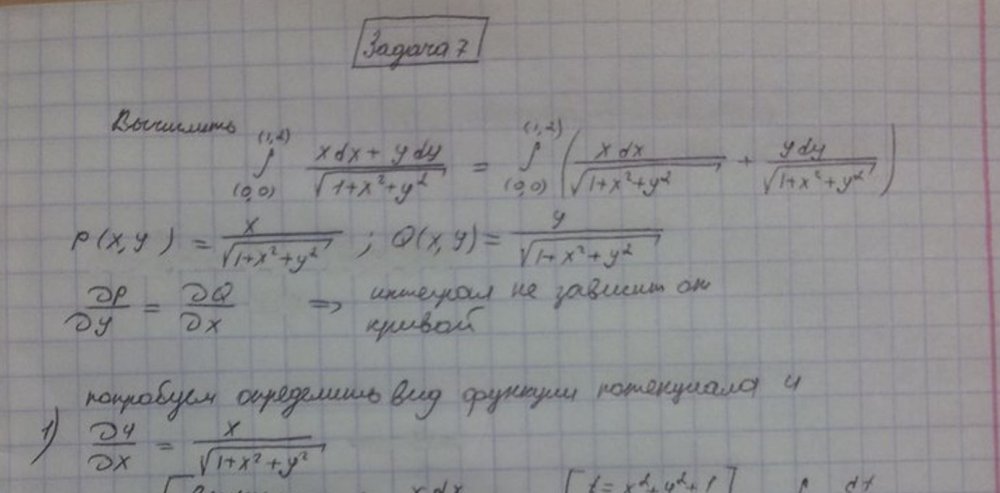 Задача 7
Вычислить
∫_{(0,0)}^{(1,2)} (x dx + y dy)/√(1+x²+y²) = ∫_{(0,0)}^{(1,2)} ( x dx/√(1+x²+y²) + y dy/√(1+x²+y²) )
P(x,y) = x/√(1+x²+y²) ; Q(x,y) = y/√(1+x²+y²)
∂P/∂y = ∂Q/∂x ⇒ интеграл не зависит от
кривой
попробуем определить вид функции потенциала u
1) ∂u/∂x = x/√(1+x²+y²)
x dx [t = x²+y²+1] ∫ dt